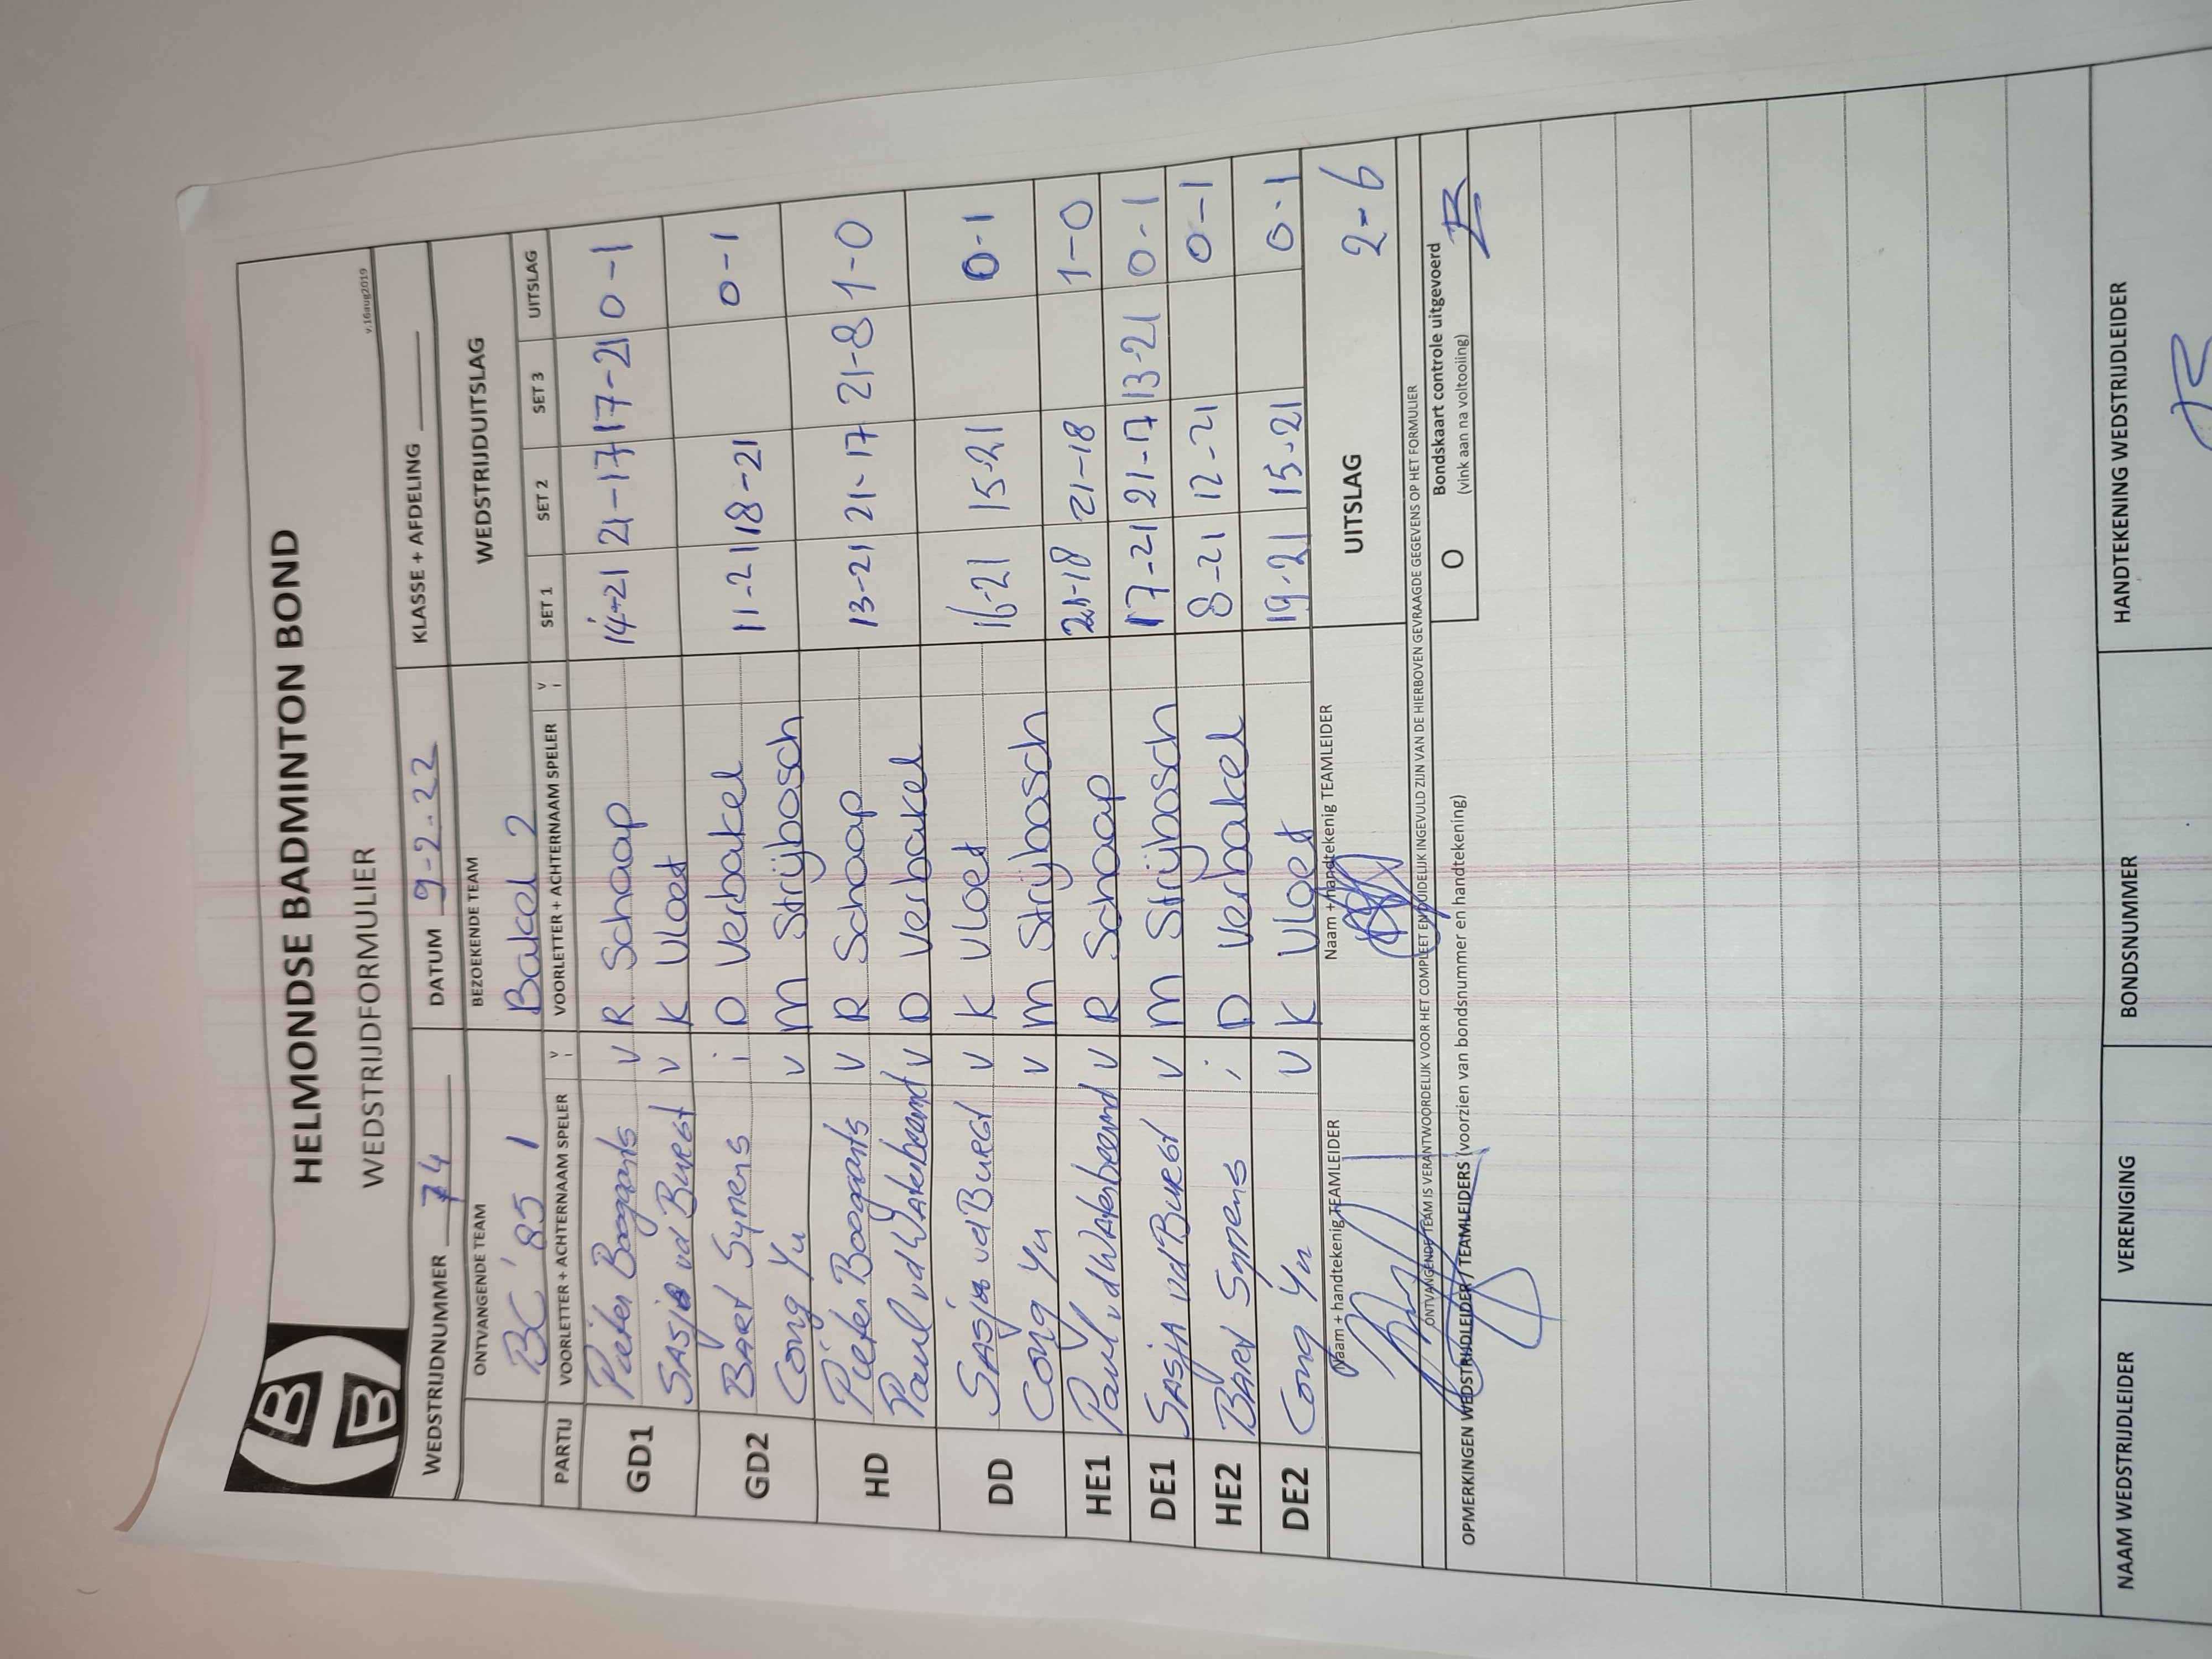 HELMONDSE BADMINTON BOND
WEDSTRIJDFORMULIER
v.16aug2019
WEDSTRIJDNUMMER 74 DATUM 9-2-22 KLASSE + AFDELING
ONTVANGENDE TEAM BEZOEKENDE TEAM WEDSTRIJDUITSLAG
BC '85 1 Bakel 2
PARTIJ VOORLETTER + ACHTERNAAM SPELER V i VOORLETTER + ACHTERNAAM SPELER V i SET 1 SET 2 SET 3 UITSLAG
GD1 Pieter Boogaarts V R Schaap 14-21 21-17 17-21 0-1
Sasja vd Burgt V K Vloet
GD2 Bart Symens i D Verbakel 11-21 18-21 0-1
Cong Yu V M Strijbosch
HD Pieter Boogaarts V R Schaap 13-21 21-17 21-8 1-0
Paul vd Waterbeemd V D Verbakel
DD Sasja vd Burgt V K Vloet 16-21 15-21 0-1
Cong Yu V M Strijbosch
HE1 Paul vd Waterbeemd V R Schaap 21-18 21-18 1-0
DE1 Sasja vd Burgt V M Strijbosch 17-21 21-17 13-21 0-1
HE2 Bart Symens i D Verbakel 8-21 12-21 0-1
DE2 Cong Yu V K Vloet 19-21 15-21 0-1
Naam + handtekenig TEAMLEIDER Naam + handtekenig TEAMLEIDER UITSLAG 2-6
ONTVANGENDE TEAM IS VERANTWOORDELIJK VOOR HET COMPLEET EN DUIDELIJK INGEVULD ZIJN VAN DE HIERBOVEN GEVRAAGDE GEGEVENS OP HET FORMULIER
OPMERKINGEN WEDSTRIJDLEIDER / TEAMLEIDERS (voorzien van bondsnummer en handtekening)
O Bondskaart controle uitgevoerd
(vink aan na voltooiing)
NAAM WEDSTRIJDLEIDER VERENIGING BONDSNUMMER HANDTEKENING WEDSTRIJDLEIDER